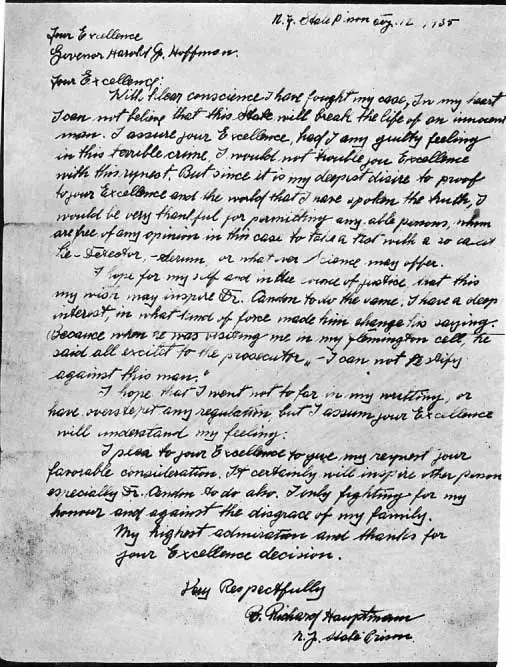 N.J. State Prison Aug. 12, 1935
Your Excellence
Govenor Harold G. Hoffman.
Your Excellency:
With clear conscience I have fought my case, In my heart
I can not believe that this State will break the life of an innocent
man. I assure your Excellence, had I any guilty feeling
in this terrible crime, I would not trouble you Excellence
with this request. But since it is my deepist disire to proof
to your Excellence and the world that I have spoken the truth, I
would be very thankful for permitting any able persons, whom
are free of any opinion in this case to take a test with a so called
lie-Detector, -Serum, or what ever science may offer.
I hope for my self and in the name of justice that this
my wish may inspire Dr. Condon to do the same. I have a deep
interest, in what kind of force made him change his saying.
Because when he was visiting me in my Flemington cell he
said all excited to the prosecutor „—I can not testify
against this man."
I hope that I went not to far in my writting, or
have any regulation, but I assum your Excellence
will understand my feeling.
I plea to your Excellence to give my request your
favorable consideration. It certainly will inspire other person
especially Dr. Condon to do also. I only fighting for my
honour and against the disgrace of my family.
My highest admiration and thanks for
your Excellence decision.
Very Respectfully
B. Richard Hauptmann
N.J. State Prison.